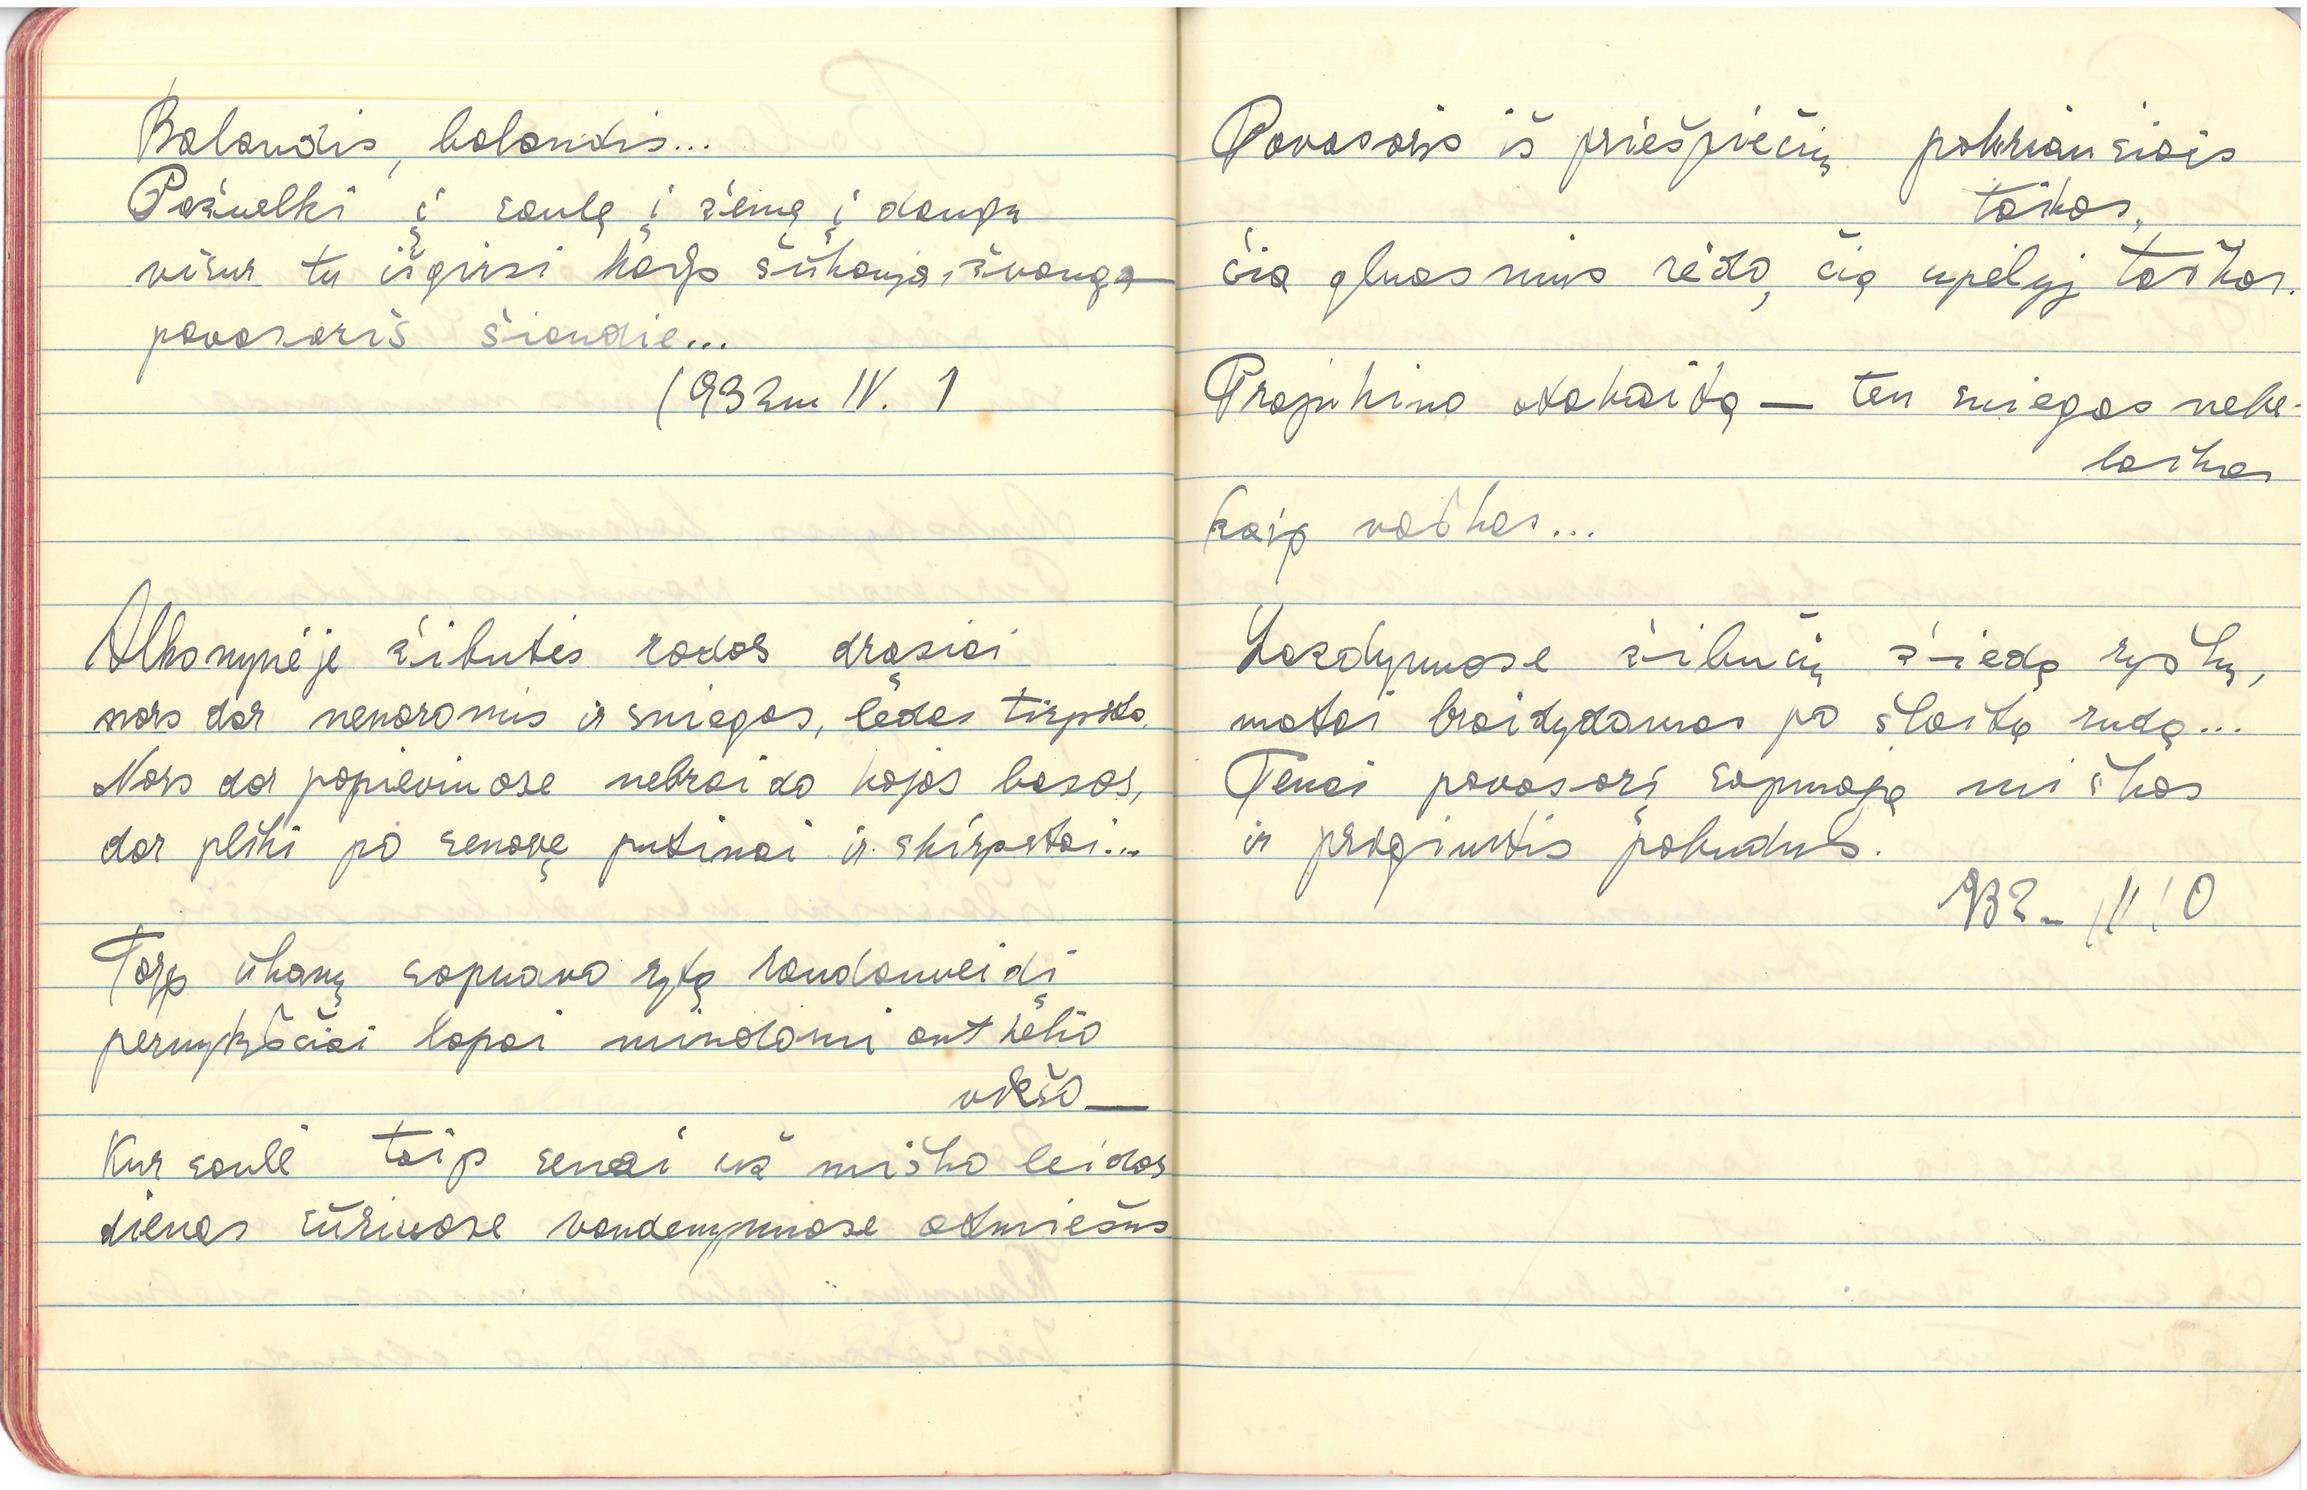 Balandis, balandis...
Pažvelki į saulę į žemę į dangų
visur tu išgirsi kaip šūkauja, žvanga
pavasaris šiandie...
1932m IV. 1
Alksnynėje žibutės rodos drąsiai
nors dar nenoromis ir sniegas, ledas tirpsta.
Nors dar papieviuose nebraido kojos basos,
dar pliki po senovę putinai ir skirpstai...
Tarp ūkanų sapnavo rytą raudonveidį
pernykščiai lapai mindomi ant kelio
viešo —
Kur saulė taip senai už miško leidos
dienas sūriuose vandenynuose atmiešus
Pavasaris iš priešpiečių pakriaušiais
taikos,
čia gluosnius rėdo, čia upelyj taškos.
Prajukino atokaitą — ten sniegas nebe-
laikos
kaip vaškas...
Lazdynuose žibučių žiedą ryškų,
matai braidydamas po šlaitą rudą...
Tenai pavasarį sapnoja miškas
ir pragiustis pabudus.
932 – IV 10